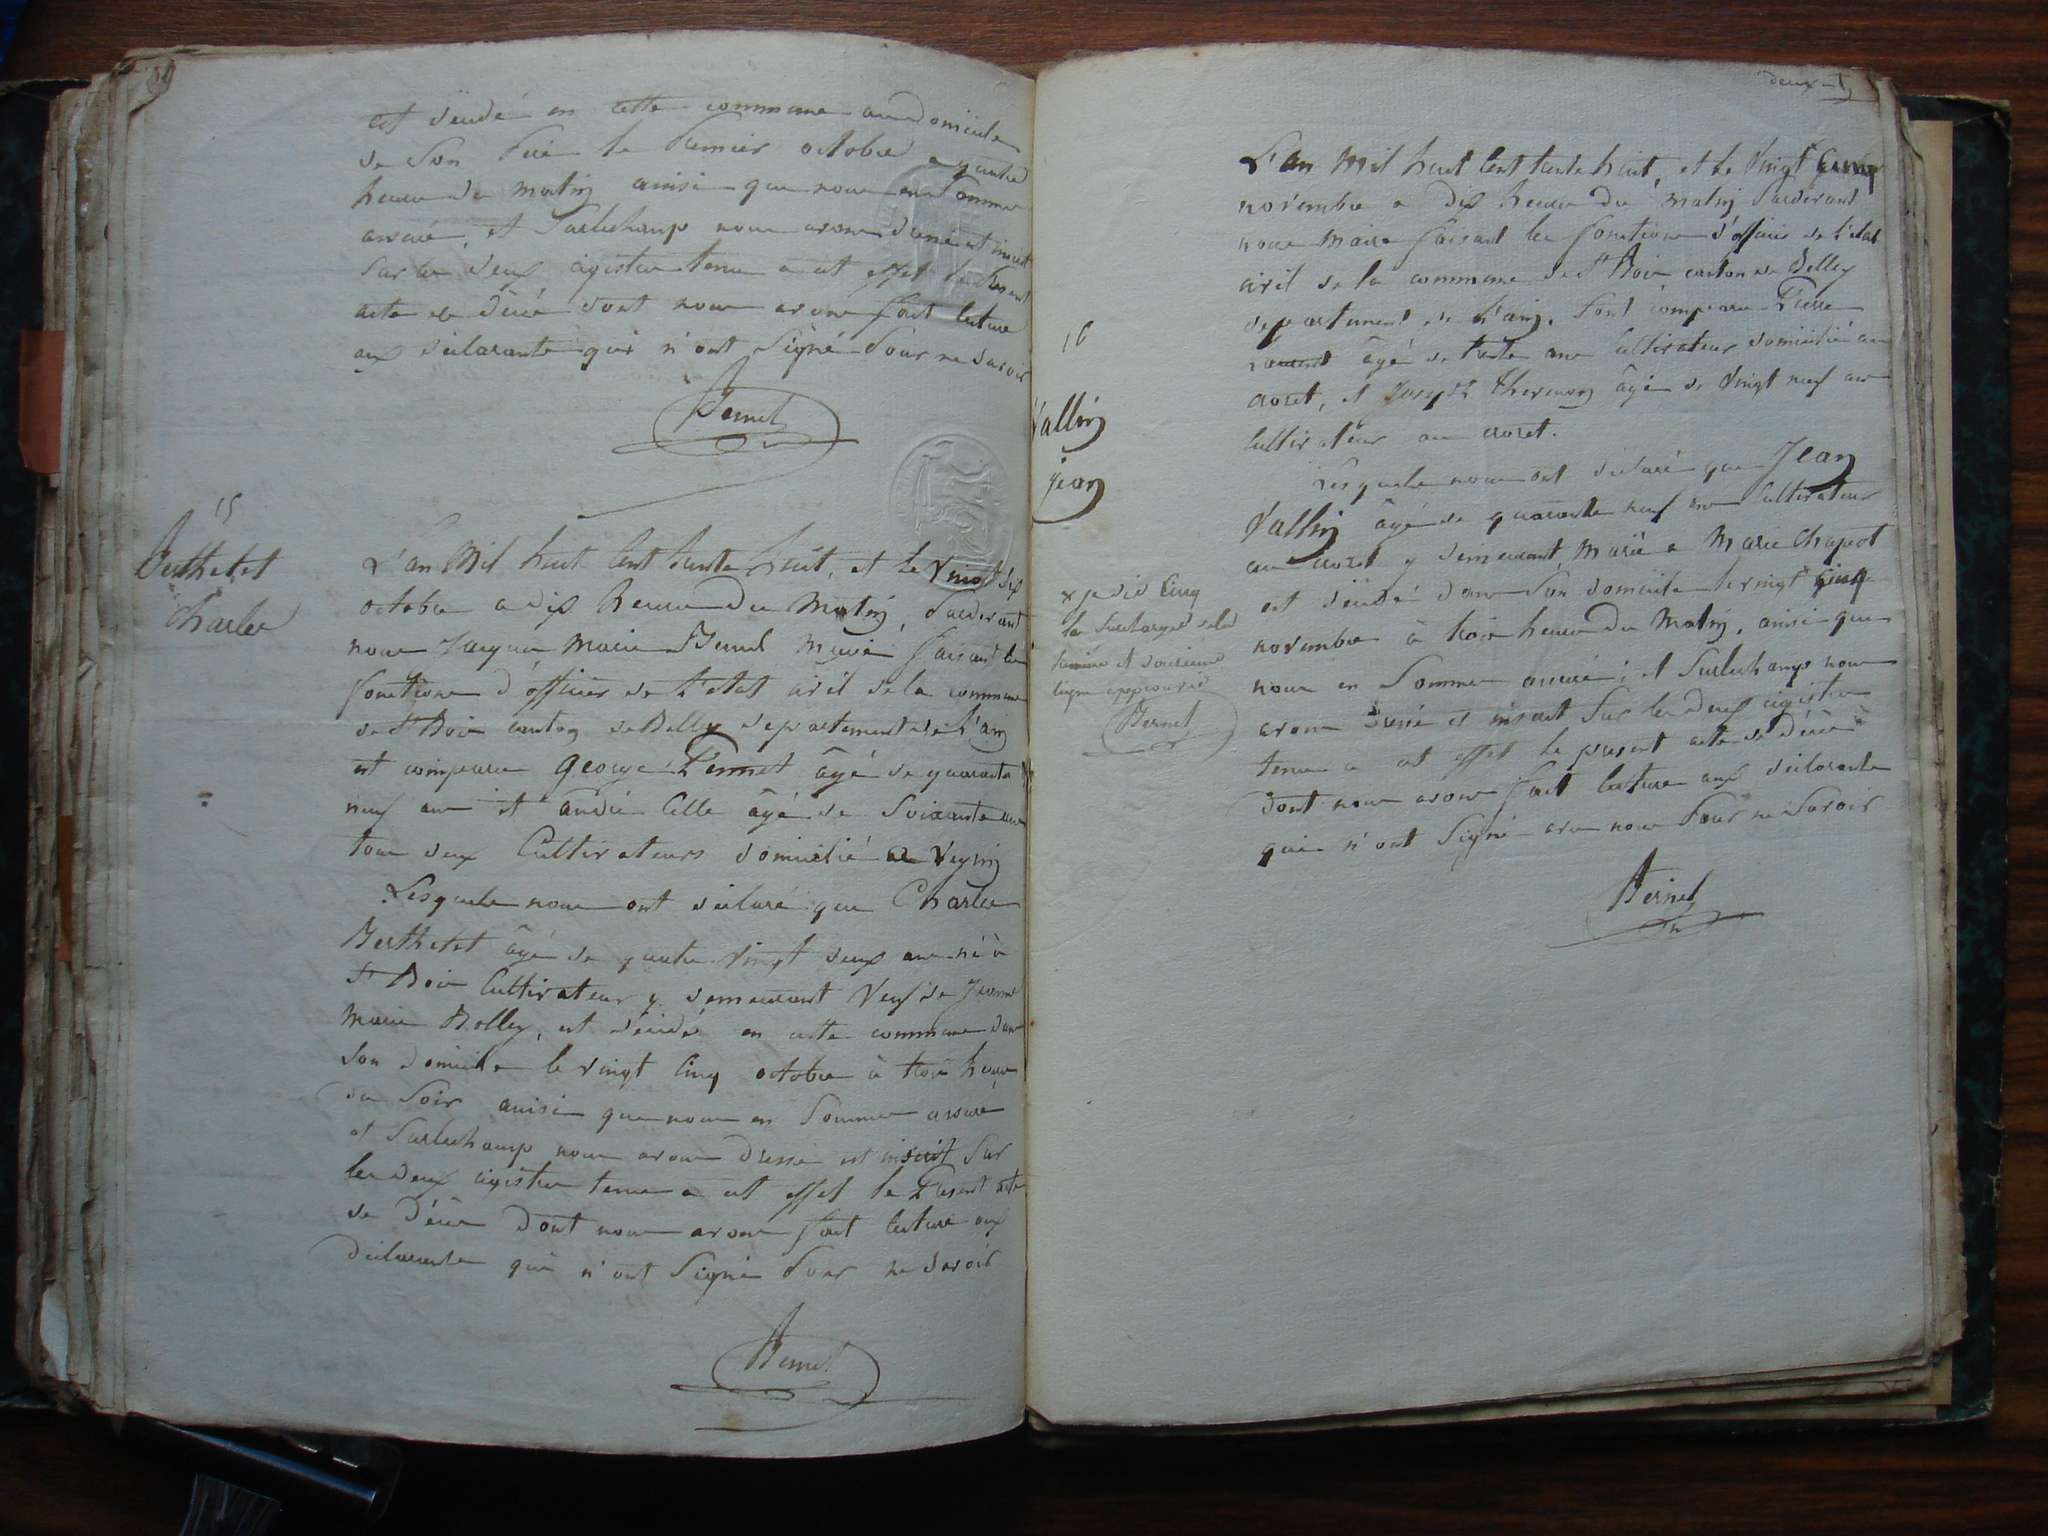 est décédé en cette commune au domicile
de Son Père le Premier octobre a quatre
heures du matin ainsi que nous en Sommes
assuré, et Surlechamp nous avons dressé et inscrit
Sur les deux registres tenus a cet effet le Présent
acte de décé dont nous avons fait lecture
aux déclarants qui n'ont Signé Pour ne Savoir
Bernet
15
Berthetet
Charles
L'an Mil huit Cent trente huit, et le Vingt Six
octobre a dix heures Du Matin, Pardevant
nous Jacques Marie Bernet Maire faisant les
fonctions d'officier de L'état civil de la commune
de St Bois canton de Belley departement de L'ain
est comparu George Pernet âgé de quarante
neuf ans et andré Celle âgé de Soixante ans
tous deux Cultivateurs domicilié a Veyrin
Lesquels nous ont déclaré que Charles
Berthetet âgé de quatre Vingt deux ans né à
St Bois Cultivateur y demeurant Veuf de Jeanne
Marie Bolley, est décédé en cette commune dans
Son domicile le vingt Cinq octobre à trois heures
du Soir ainsi que nous en Sommes assuré
et Surlechamp nous avons dressé et inscrit Sur
les deux registres tenus a cet effet le Présent acte
de Décès Dont nous avons fait lecture aux
Déclarants qui n'ont Signé Pour ne Savoir
Bernet
deux
16
Vallin
Jean
L'an Mil huit Cent trente huit, et le Vingt Cinq
novembre a Dix heures Du Matin Pardevant
nous Maire faisant les fonctions d'officier de L'état
civil de la commune de St Bois canton de Belley
departement de L'ain. Sont comparu Pierre
âgé de trente ans Cultivateur domicilié au
crozet, et Joseph Thevenon âgé de Vingt neuf ans
Cultivateur au crozet.
Lesquels nous ont déclaré que Jean
Vallin âgé de quarante neuf ans Cultivateur
au crozet y demeurant Marié a Marie Chapot
est décédé dans Son domicile le vingt cinq
novembre à trois heures Du Matin, ainsi que
nous en Sommes assuré ; et Surlechamps nous
avons dressé et inscrit Sur les deux registres
tenus a cet effet le présent acte de Décès
Dont nous avons fait lecture aux déclarants
qui n'ont Signé avec nous Pour ne Savoir
Bernet
x je dis Cinq
la Surcharge de la
première et douzième
ligne approuvé
Bernet